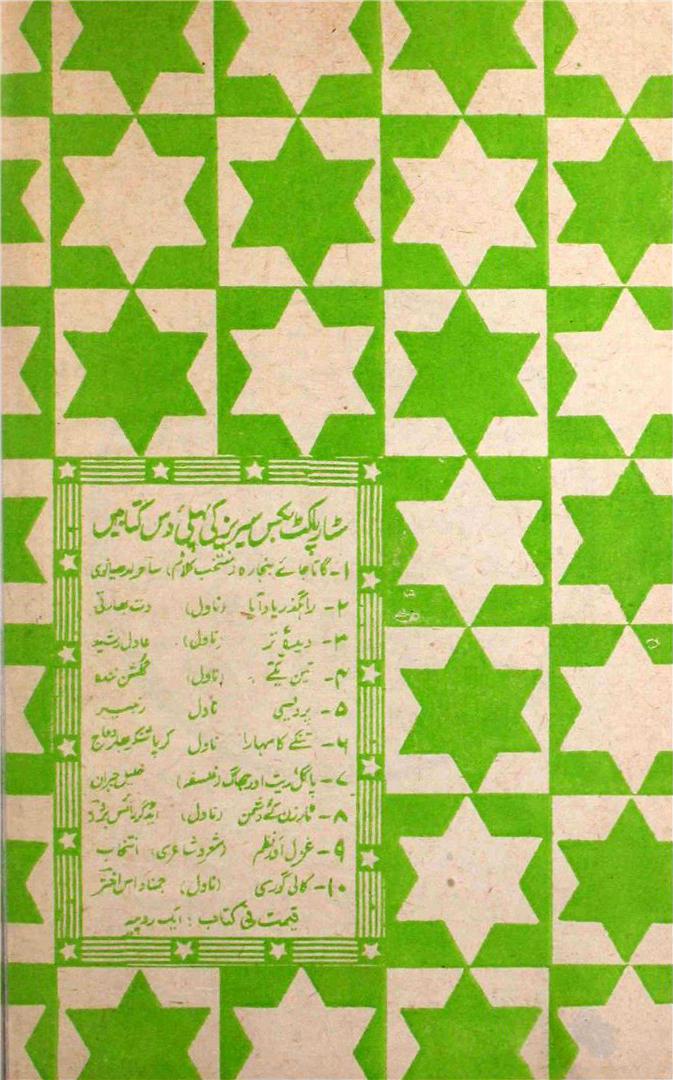 سٹار پاکٹ بکس سیریز کی پہلی دس کتابیں
۱- گاتا جائے بنجارہ (منتخب کلام) ساحر لدھیانوی
۲- راہگذر یاد آیا (ناول) دت بھارتی
۳- دیدۂ تر (ناول) عادل رشید
۴- تین یکے (ناول) گلشن نندہ
۵- پردیسی ناول رنبیر
۶- تنکے کا سہارا ناول کرپا شنکر بھاردواج
۷- پاگل، ریت اور جھاگ (فلسفہ) خلیل جبران
۸- ٹارزن کے دشمن (ناول) ایڈگر رائس بروز
۹- غزل اور نظم (شعر و شاعری) انتخاب
۱۰- کالی گوری (ناول) جمنا داس اختر
قیمت فی کتاب : ایک روپیہ